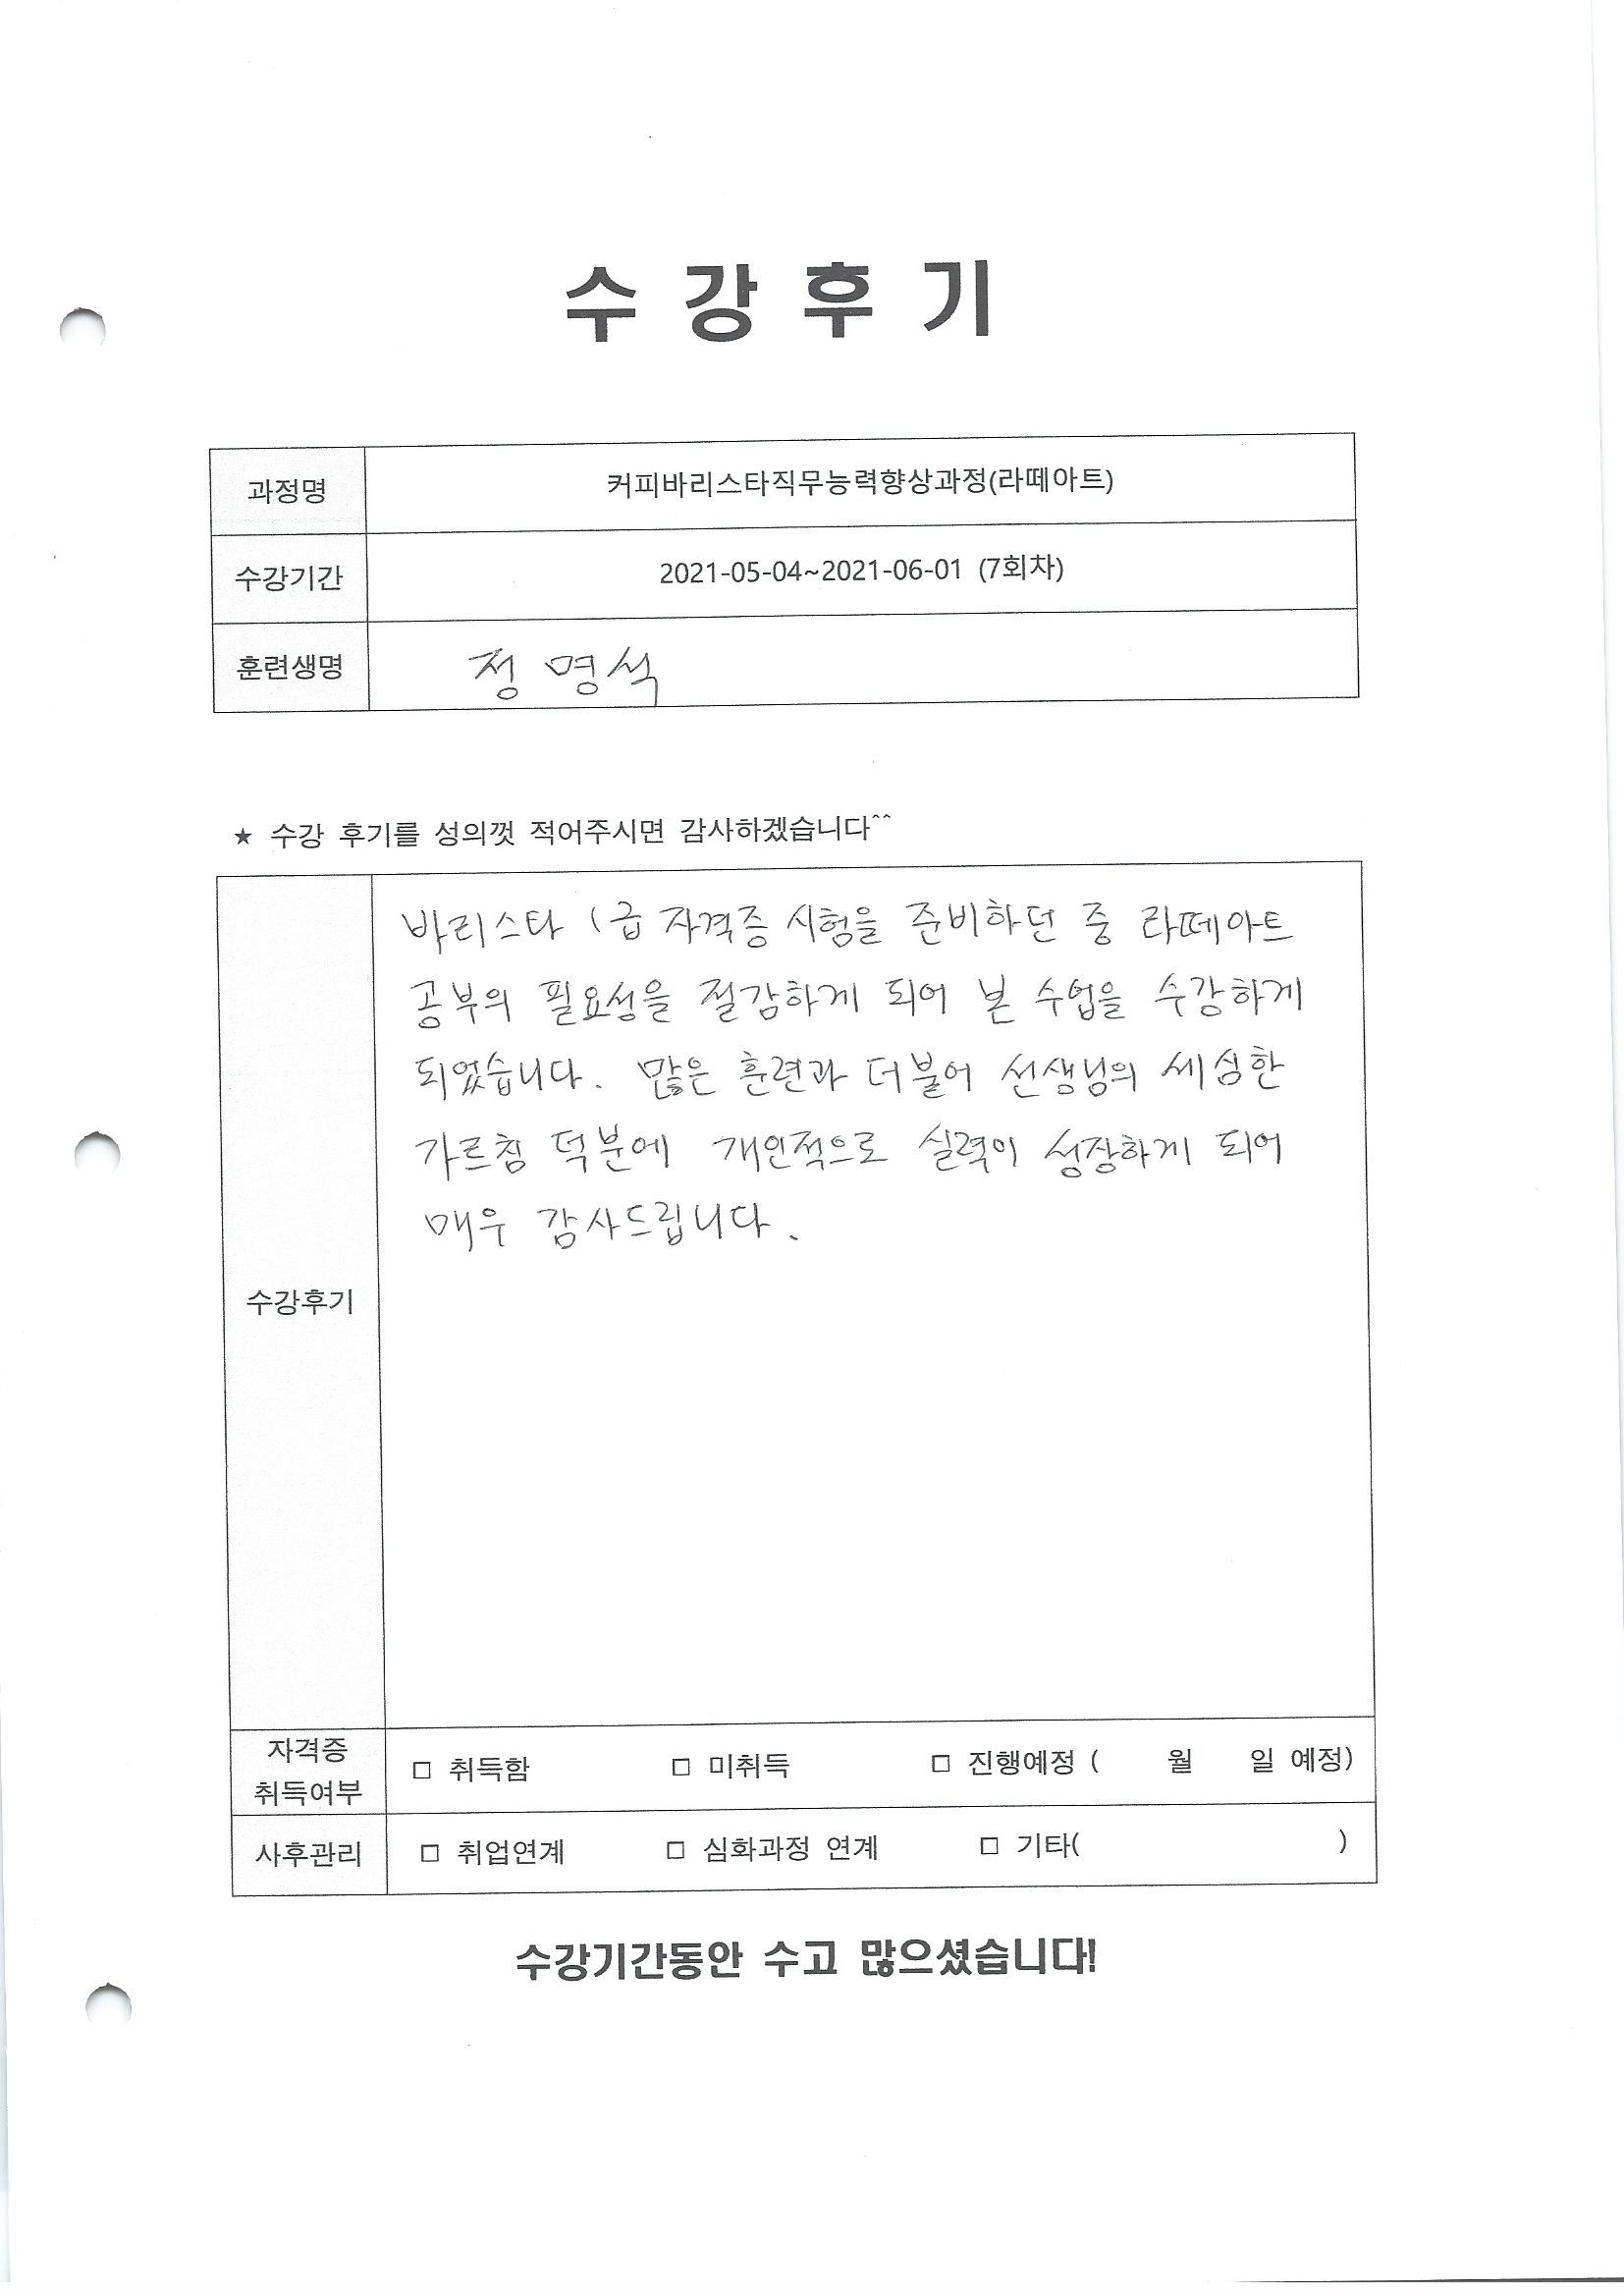 수 강 후 기
과정명 커피바리스타직무능력향상과정(라떼아트)
수강기간 2021-05-04~2021-06-01 (7회차)
훈련생명 정명석
★ 수강 후기를 성의껏 적어주시면 감사하겠습니다^^
바리스타 1급 자격증 시험을 준비하던 중 라떼아트
공부의 필요성을 절감하게 되어 본 수업을 수강하게
되었습니다. 많은 훈련과 더불어 선생님의 세심한
가르침 덕분에 개인적으로 실력이 성장하게 되어
매우 감사드립니다.
수강후기
자격증
취득여부
□ 취득함 □ 미취득 □ 진행예정 ( 월 일 예정)
사후관리 □ 취업연계 □ 심화과정 연계 □ 기타( )
수강기간동안 수고 많으셨습니다!